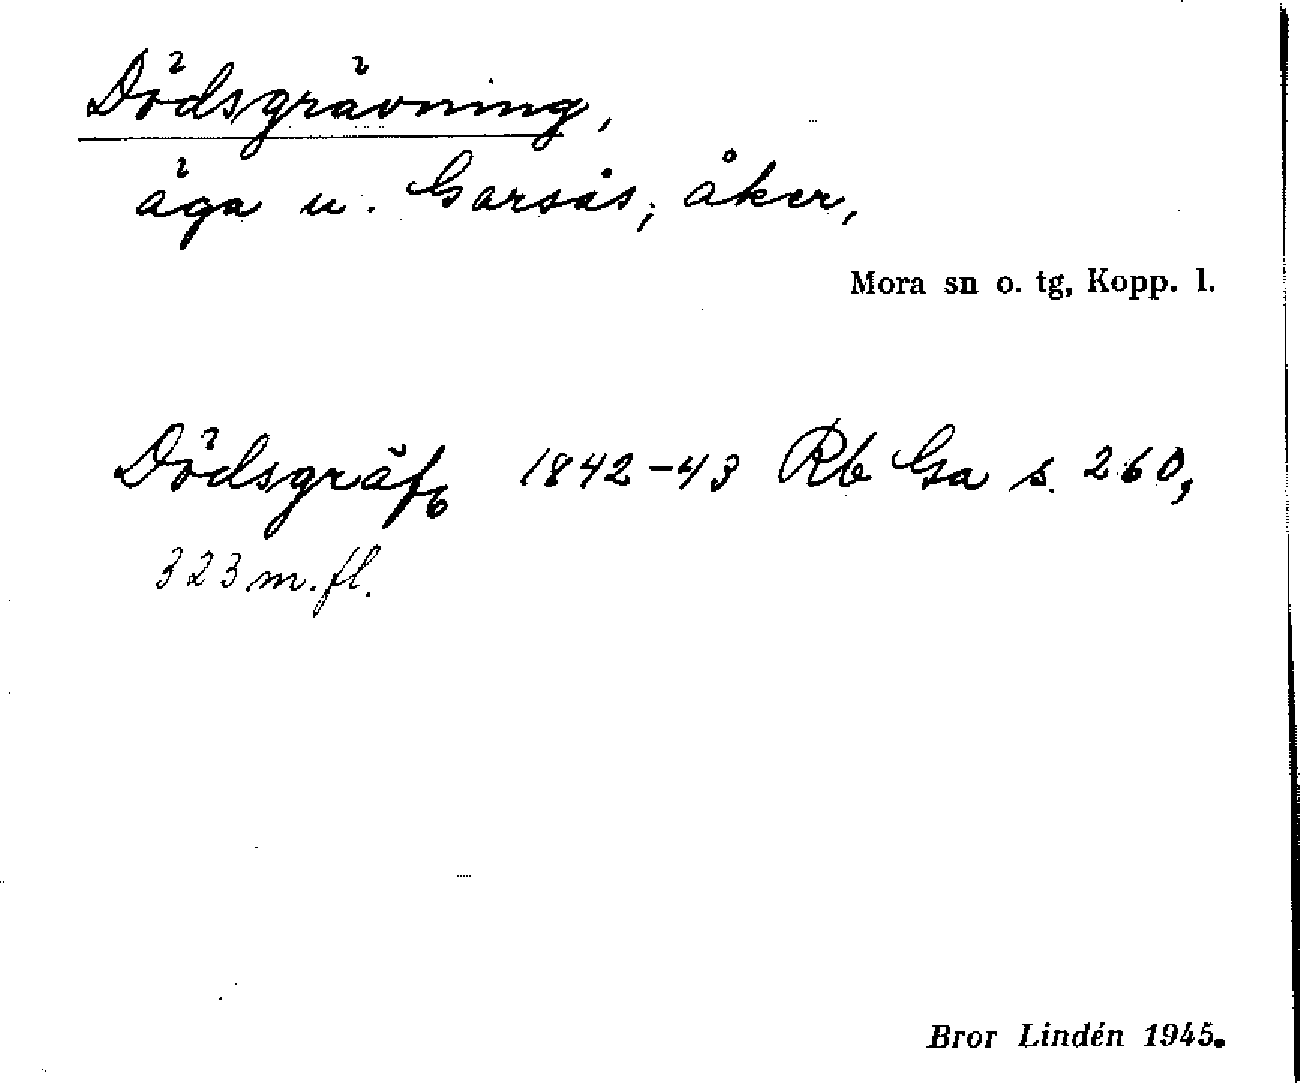 Dödsgrävning,
äga u. Garsås; åker,
Mora sn o. tg, Kopp. l.
Dödsgräfn 1842-43 Rb Ga s. 260,
323 m. fl.
Bror Lindén 1945.